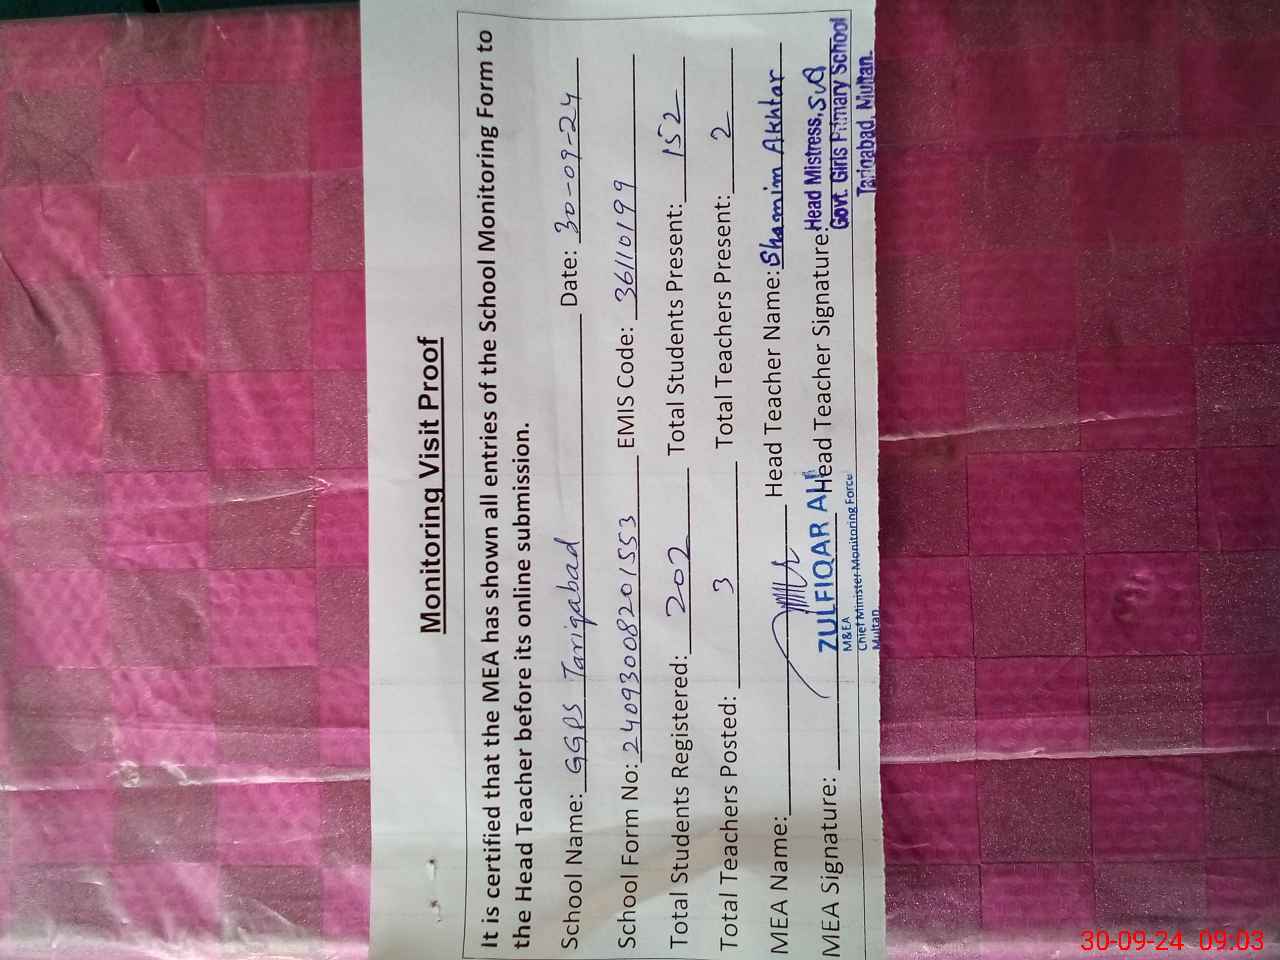 Monitoring Visit Proof
It is certified that the MEA has shown all entries of the School Monitoring Form to
the Head Teacher before its online submission.
School Name: GGPS Tariqabad Date: 30-09-24
School Form No: 24093008201553 EMIS Code: 36110199
Total Students Registered: 202 Total Students Present: 152
Total Teachers Posted: 3 Total Teachers Present: 2
MEA Name: Head Teacher Name: Shamim Akhtar
MEA Signature: Head Teacher Signature:
ZULFIQAR ALI
M&EA
Chief Minister Monitoring Force
Multan
Head Mistress,
Govt. Girls Primary School
Tariqabad, Multan.
30-09-24 09:03